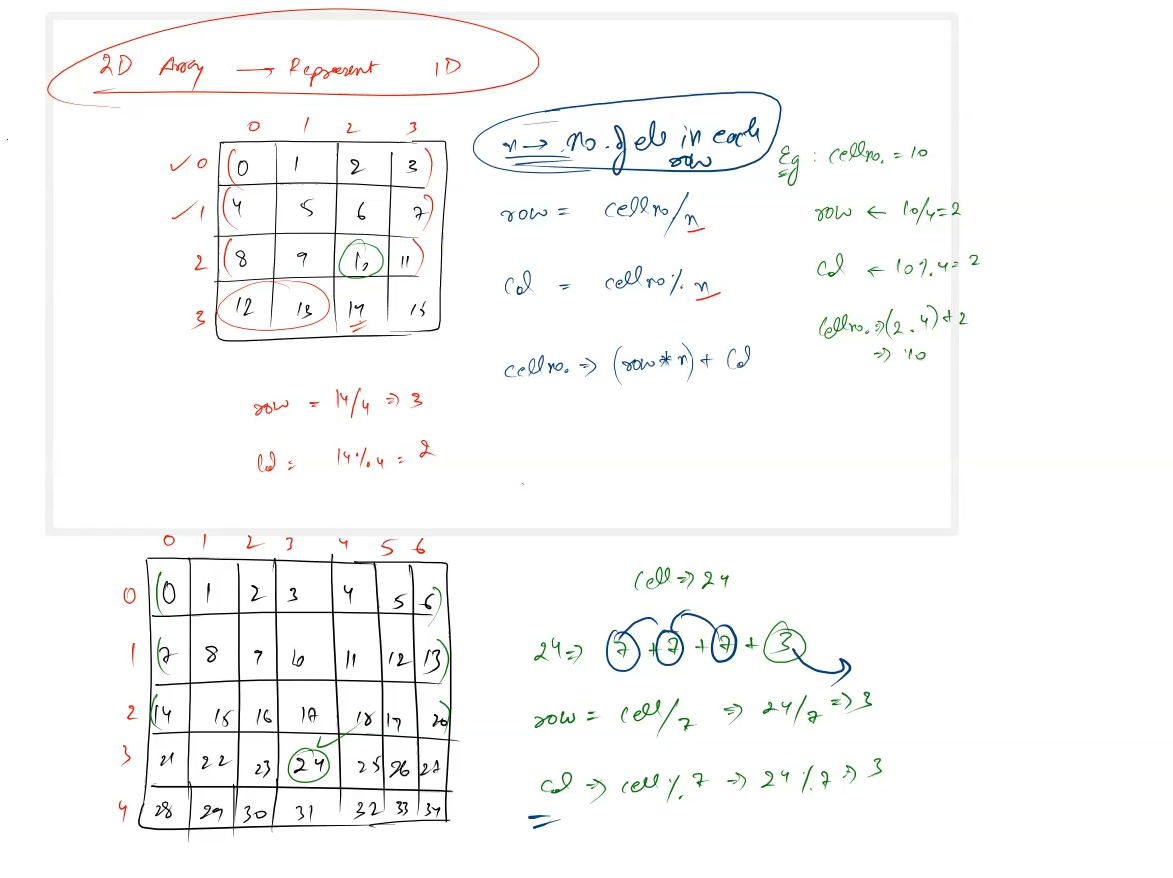 2D Array → Represent 1D
0 1 2 3
✓ 0 (0 1 2 3)
✓ 1 (4 5 6 7)
2 (8 9 10 11)
3 12 13 14 15
row = 14/4 => 3
Col = 14%4 = 2
n → no. of els in each
row
row = cell no/n
Col = cell no % n
cell no. => (row * n) + Col
Eg : cell no. = 10
row ← 10/4 = 2
Col ← 10%4 = 2
Cell no. => (2 . 4) + 2
=> 10
0 1 2 3 4 5 6
0 (0 1 2 3 4 5 6)
1 (7 8 9 10 11 12 13)
2 (14 15 16 17 18 19 20)
3 21 22 23 24 25 26 27
4 28 29 30 31 32 33 34
Cell => 24
24 => 7 + 7 + 7 + 3
row = Cell/7 => 24/7 => 3
Col => Cell % 7 => 24 % 7 => 3